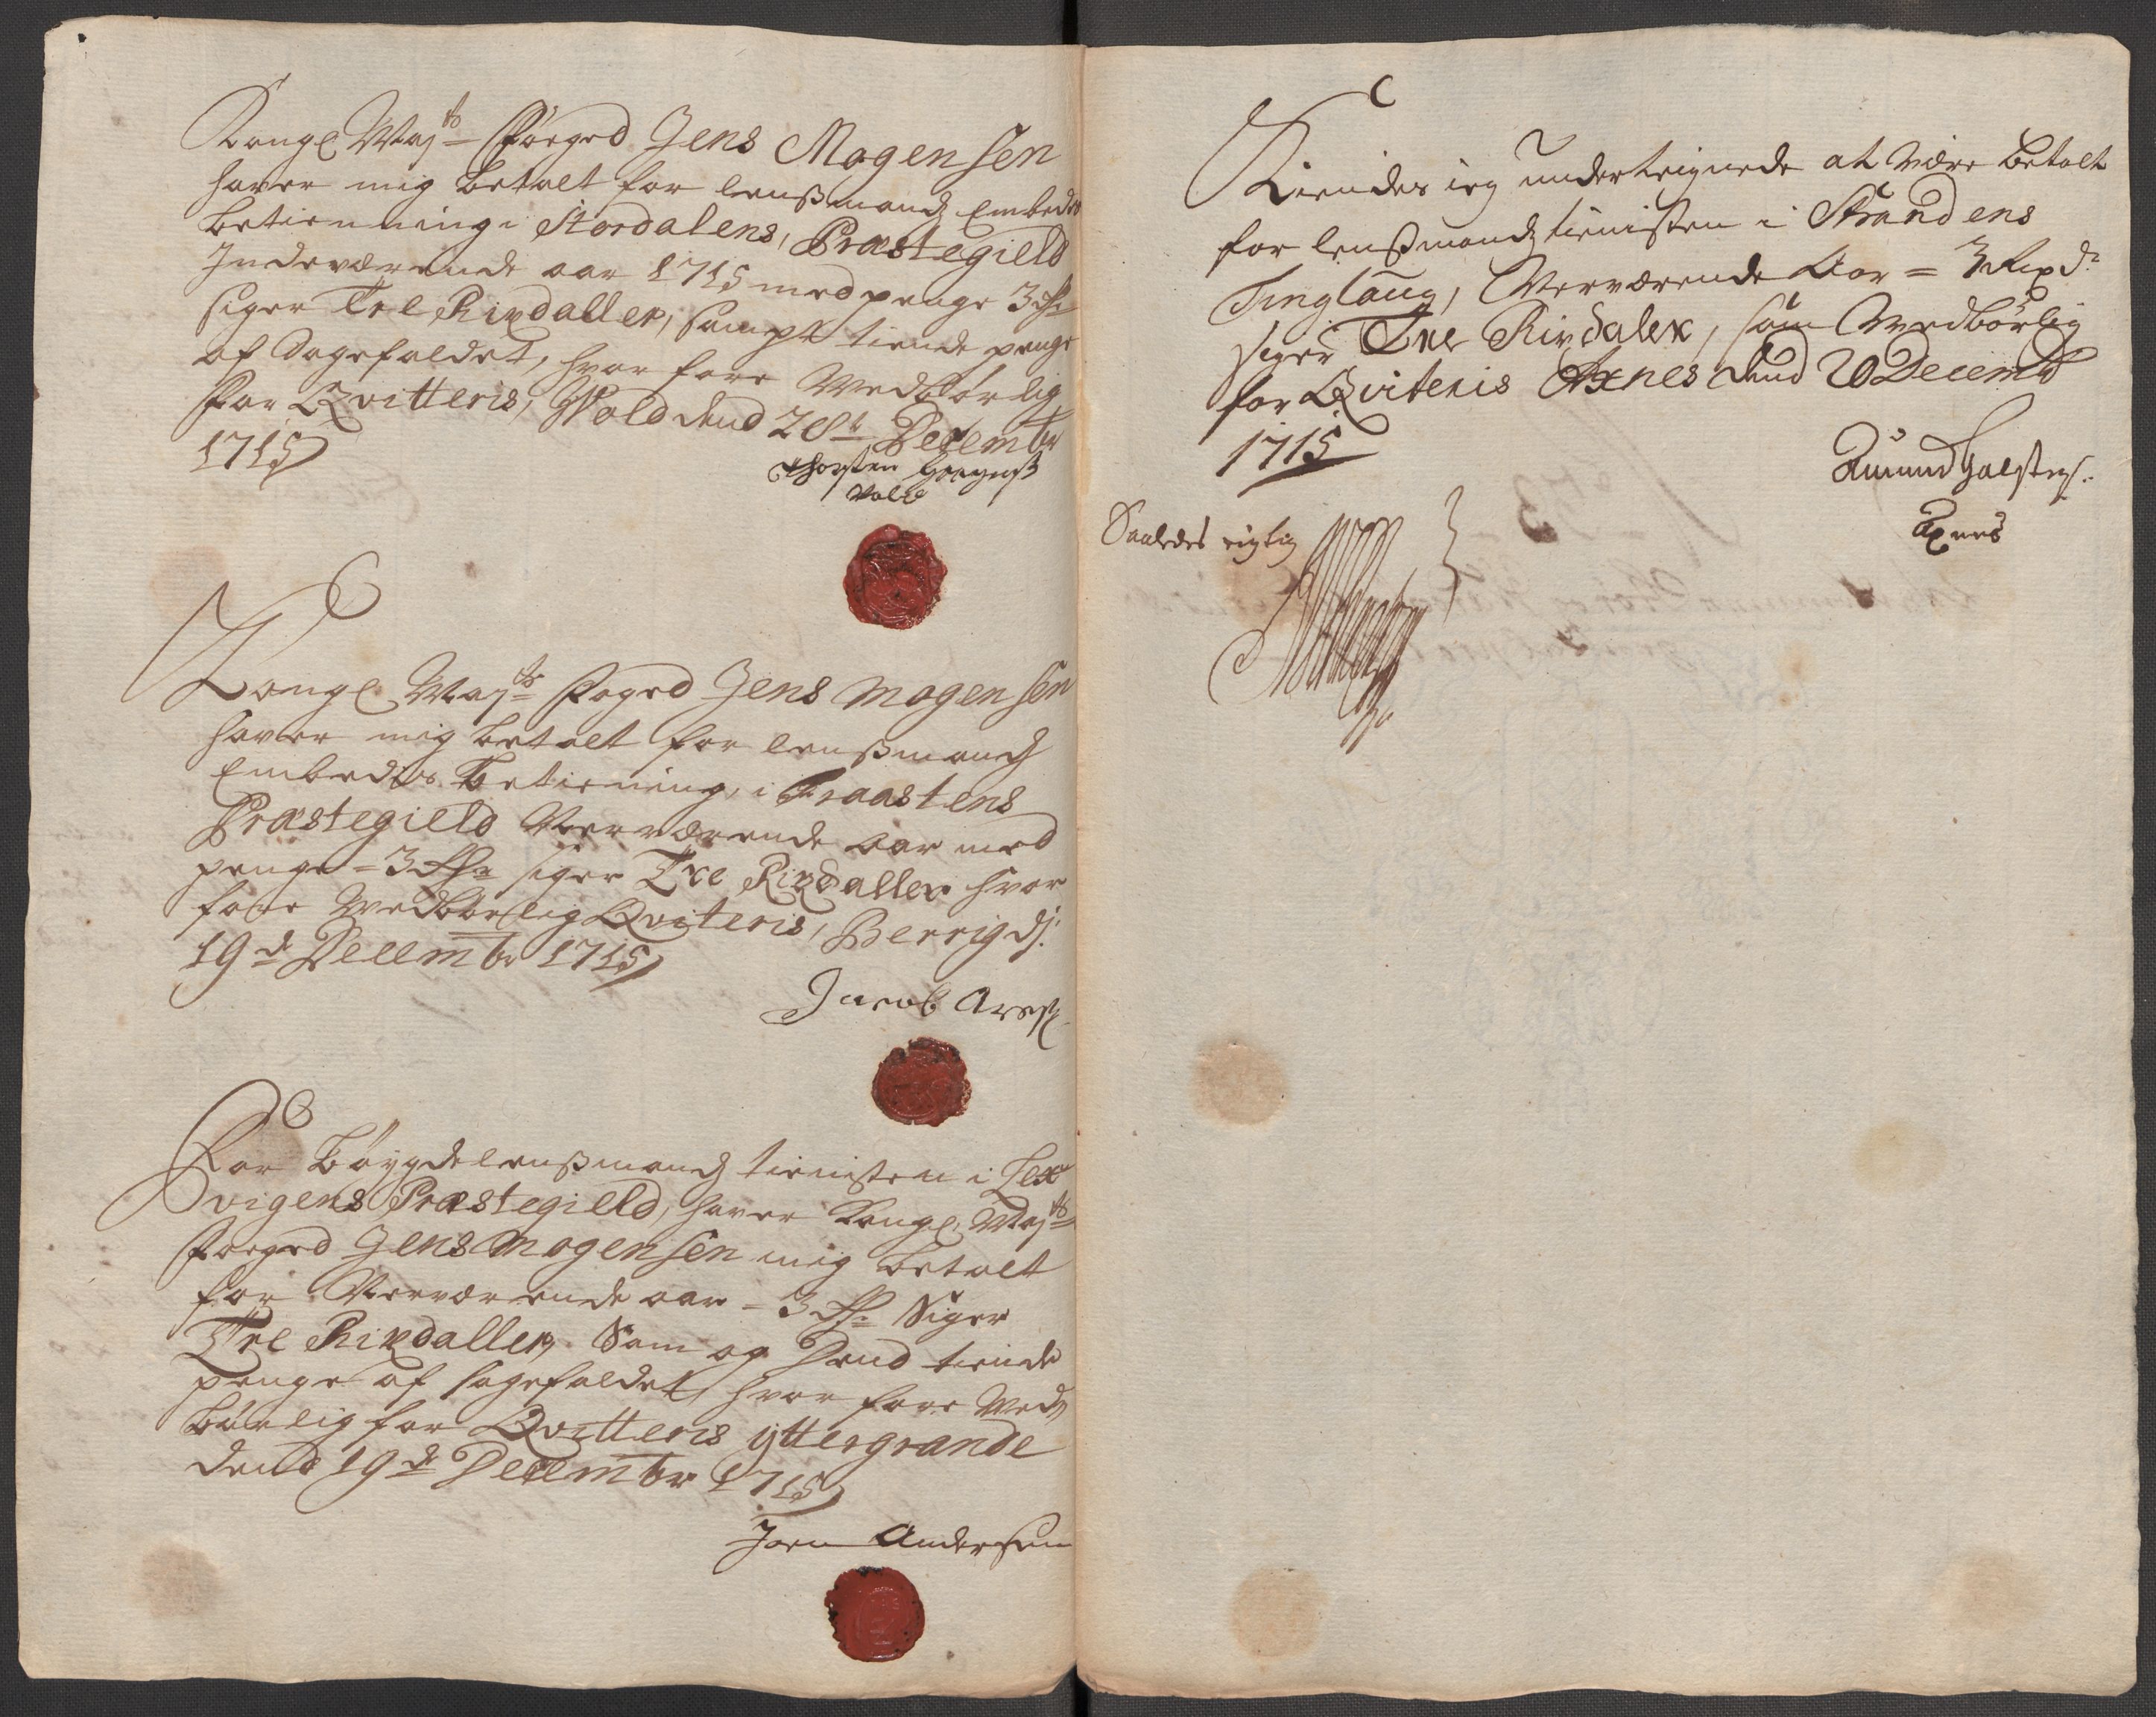 Kongl Maj.ts Foeged Jens Mogensen
haver mig betalt for lensmands Embedes
betienning i Stordalens, Præstegield
Indeværende aar 1715 med penge 3 Rd
siger Tre Rixdaller, sampt tiende penge
af Sagefaldet, hvor fore Wedbørlig
for Qvitteris, Wold dend 28de Decembr
1715
Thorsten
Vold
Kongl Maj.ts Foged Jens Mogensen
haver mig betalt for lensmands
Embedes betiening, i Fraastens
Præstegield Nerværende aar med
penge = 3 Rd siger Tre Rixdaller hvor
fore Wedbørlig Qviteris, Berrig d:
19de Decembr 1715
Jacob Ares.
For Bøygdelensmands tienisten i Lex
vigens Præstegield, haver Kongl. Maj.ts
Foeged Jens Mogensen mig betalt
for Nerværende aar = 3 Rd. Siger
Tre Rixdaller Som og Dend tiende
penge af sagefaldet, hvor fore Wed
børlig for Qvitteris yttergrande
dend 19de Decembr 1715
Joen Andersen
Kiendes ieg underteignede at være betalt
for lensmands tienisten i Strandens
Tinglaug, Nerværende Aar = 3 Rixd:
siger Tre Rixdaler, som Wedbørlig
for Qviteris Axnes dend 20 Decembr
1715
Amund Halstens.
Axnes
Saaledes rigtig